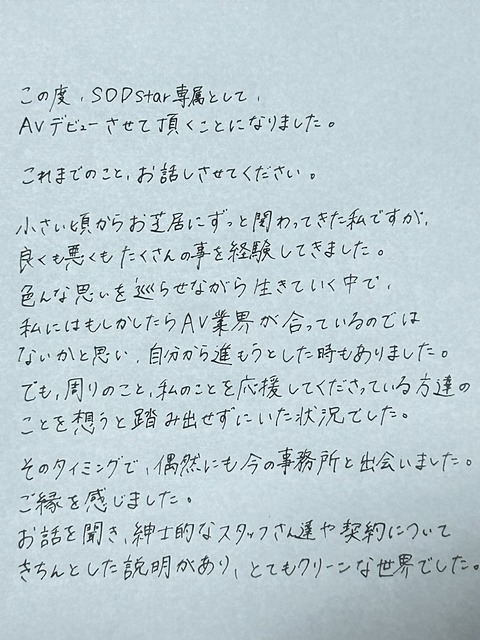 この度、SODstar専属として、
AVデビューさせて頂くことになりました。
これまでのこと、お話しさせてください。
小さい頃からお芝居にずっと関わってきた私ですが、
良くも悪くもたくさんの事を経験してきました。
色んな思いを巡らせながら生きていく中で、
私にはもしかしたらAV業界が合っているのでは
ないかと思い、自分から進もうとした時もありました。
でも、周りのこと、私のことを応援してくださっている方達の
ことを想うと踏み出せずにいた状況でした。
そのタイミングで、偶然にも今の事務所と出会いました。
ご縁を感じました。
お話を聞き、紳士的なスタッフさん達や契約について
きちんとした説明があり、とてもクリーンな世界でした。